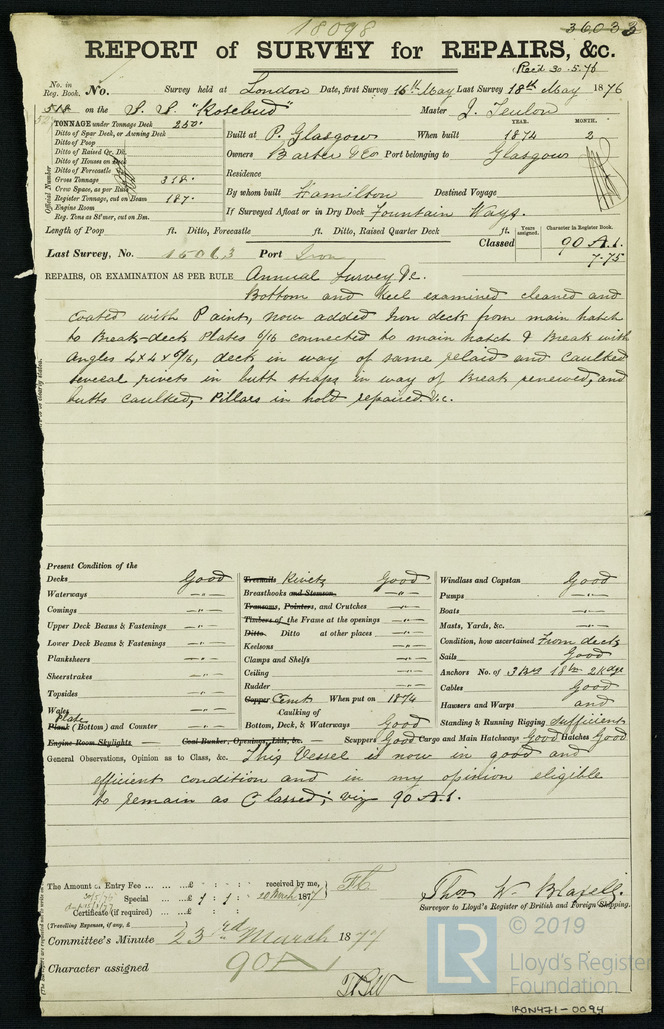 18098
36033
REPORT of SURVEY for REPAIRS, &c.
Rec'd 30.5.76
No. in Reg. Book. No. Survey held at London Date, first Survey 16th May Last Survey 18th May 1876
518 on the S. S. "Rosebud" Master J. Teulon
TONNAGE under Tonnage Deck 250.
Ditto of Spar Deck, or Awning Deck
Ditto of Poop
Ditto of Raised Qr. Dk.
Ditto of Houses on Deck
Ditto of Forecastle
Gross Tonnage 318.
Crew Space, as per Rule
Register Tonnage, cut on Beam 187.
Engine Room
Reg. Tons as St'mer, cut on Bm.
Official Number
YEAR. MONTH.
Built at P. Glasgow When built 1874 2
Owners Barber & Co Port belonging to Glasgow
Residence
By whom built Hamilton Destined Voyage
If Surveyed Afloat or in Dry Dock Fountain Ways.
Length of Poop ft. Ditto, Forecastle ft. Ditto, Raised Quarter Deck ft.
Years assigned. Character in Register Book.
Last Survey, No. Port Iron Classed 90 A.1.
7.75
REPAIRS, OR EXAMINATION AS PER RULE Annual Survey &c.
Bottom and Keel examined cleaned and
coated with Paint, now added Iron deck from main hatch
to Break-deck Plates 6/16 connected to main hatch & Break with
angles 4 x 4 x 6/16, deck in way of same relaid and caulked
several rivets in butt straps in way of Break renewed, and
butts caulked, Pillars in hold repaired &c.
Present Condition of the
Decks Good
Waterways -"-
Comings -"-
Upper Deck Beams & Fastenings -"-
Lower Deck Beams & Fastenings -"-
Planksheers -"-
Sheerstrakes -"-
Topsides -"-
Wales -"-
Plate
Plank (Bottom) and Counter -"-
Engine Room Skylights Coal Bunker, Openings, Lids, &c. Scuppers Good Cargo and Main Hatchways Good Hatches Good
Treenails Rivets Good
Breasthooks and Stemson -"-
Transoms, Pointers, and Crutches -"-
Timbers of the Frame at the openings -"-
Ditto. Ditto at other places -"-
Keelsons -"-
Clamps and Shelfs -"-
Ceiling -"-
Rudder -"-
Copper Cemt When put on 1874
Caulking of
Bottom, Deck, & Waterways Good
Windlass and Capstan Good
Pumps -"-
Boats -"-
Masts, Yards, &c. -"-
Condition, how ascertained From deck
Sails Good
Anchors No. of 3 Brs 1 Stm 2 Kedge
Cables Good
Hawsers and Warps and
Standing & Running Rigging Sufficient
General Observations, Opinion as to Class, &c. This Vessel is now in good and
efficient condition and in my opinion eligible
to remain as Classed; viz 90 A.1.
The Amount of Entry Fee ... £ : : received by me,
Special ... £ 1 : 1 : 20 March 1877
Certificate (if required) ... £ : :
(Travelling Expenses, if any, £
Thos W. Blaxell.
Surveyor to Lloyd's Register of British and Foreign Shipping.
Committee's Minute 23rd March 1877
Character assigned 90 A 1
© 2019
LR
Lloyd's Register
Foundation
IRON471-0094